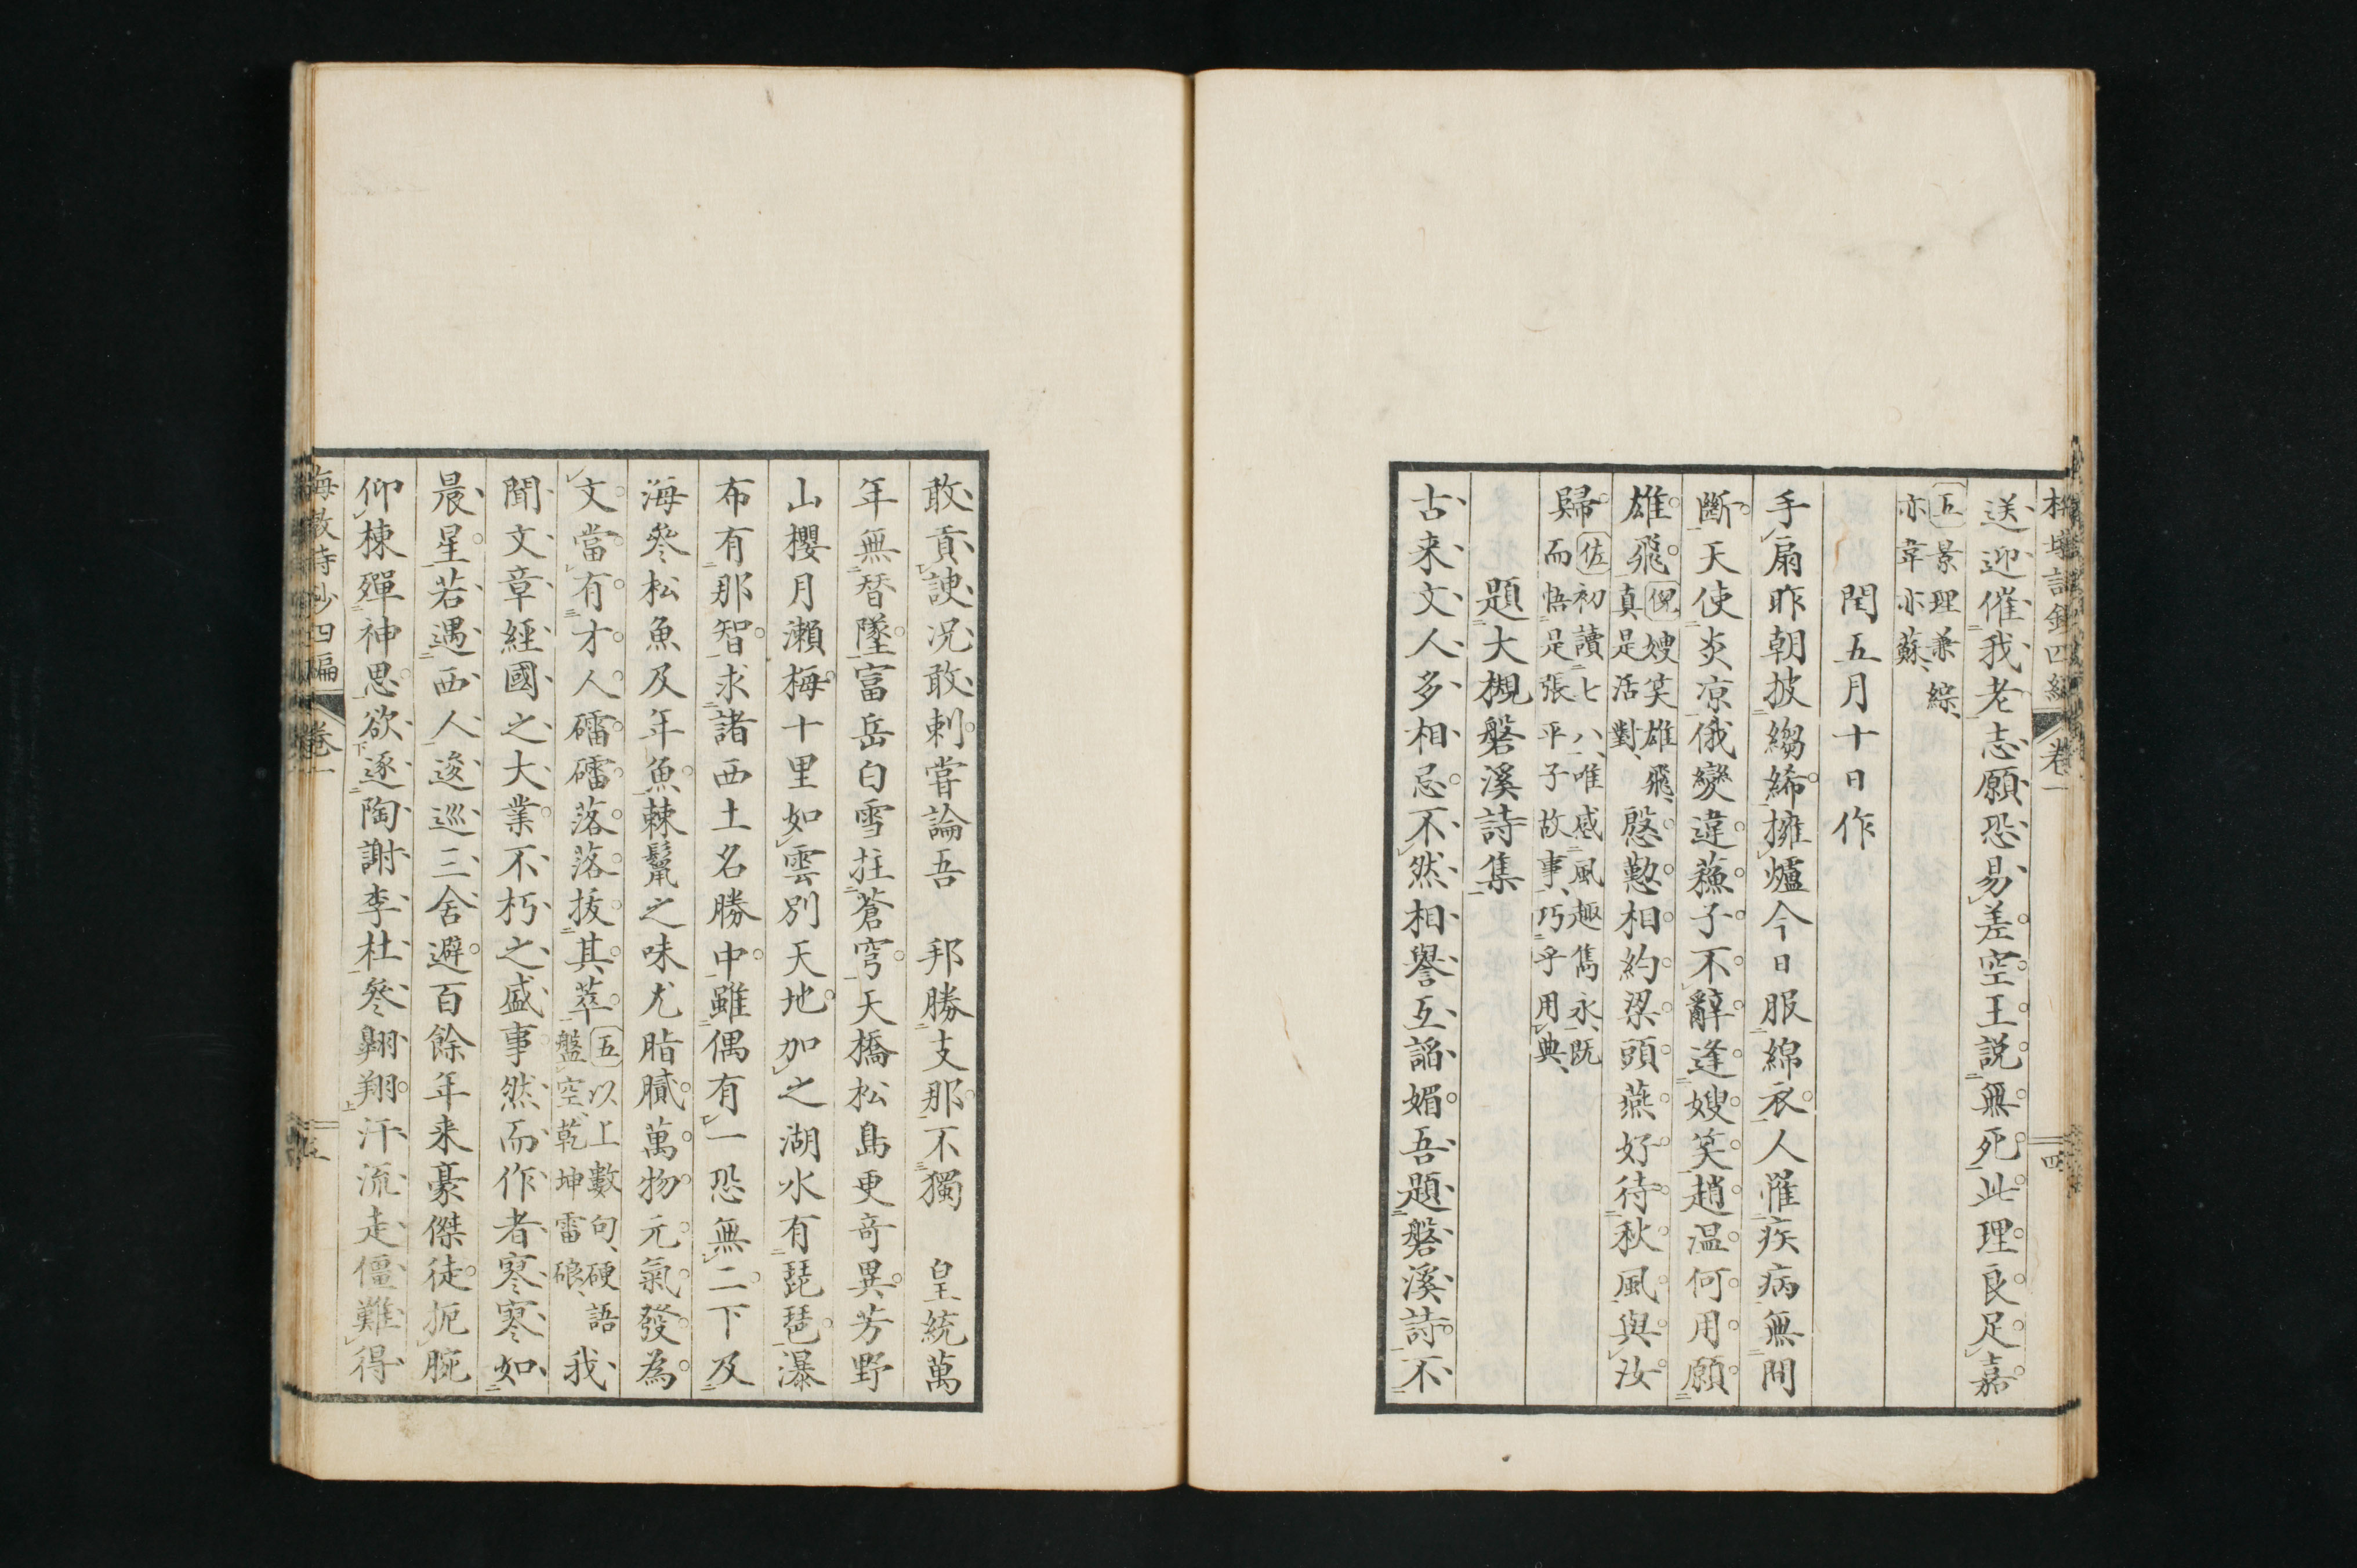 梅墩詩鈔四編 卷一 四
送迎催我老志願恐易差空王説無死此理良足嘉
五景理兼綜
亦韋亦蘇
閏五月十日作
手扇昨朝披縐絺擁爐今日服綿衣人罹疾病無間
斷天使炎凉俄變違蘓子不辭逢嫂笑趙温何用願
雄飛
倪嫂笑雄飛
真是活對
慇懃相約梁頭燕好待秋風與汝
歸
佐初讀七八唯感風趣雋永既
而悟是張平子故事巧乎用典
題大槻磐溪詩集
古来文人多相忌不然相譽互諂媚吾題磐溪詩不
敢貢諛况敢刺嘗論吾 邦勝支那不獨 皇統萬
年無暦墜富岳白雪拄蒼穹天橋松島更竒異芳野
山櫻月瀬梅十里如雲別天地加之湖水有琵琶瀑
布有那智求諸西土名勝中雖偶有一恐無二下及
海參松魚及年魚棘鬣之味尤脂膩萬物元氣發為
文當有才人礌礌落落抜其萃
五以上數句硬語
盤空乾坤雷硠
我
聞文章經國之大業不朽之盛事然而作者寥寥如
晨星若遇西人逡巡三舍避百餘年来豪傑徒扼腕
仰棟殫神思欲逐陶謝李杜參翺翔汗流走僵難得
梅墩詩鈔四編 卷一